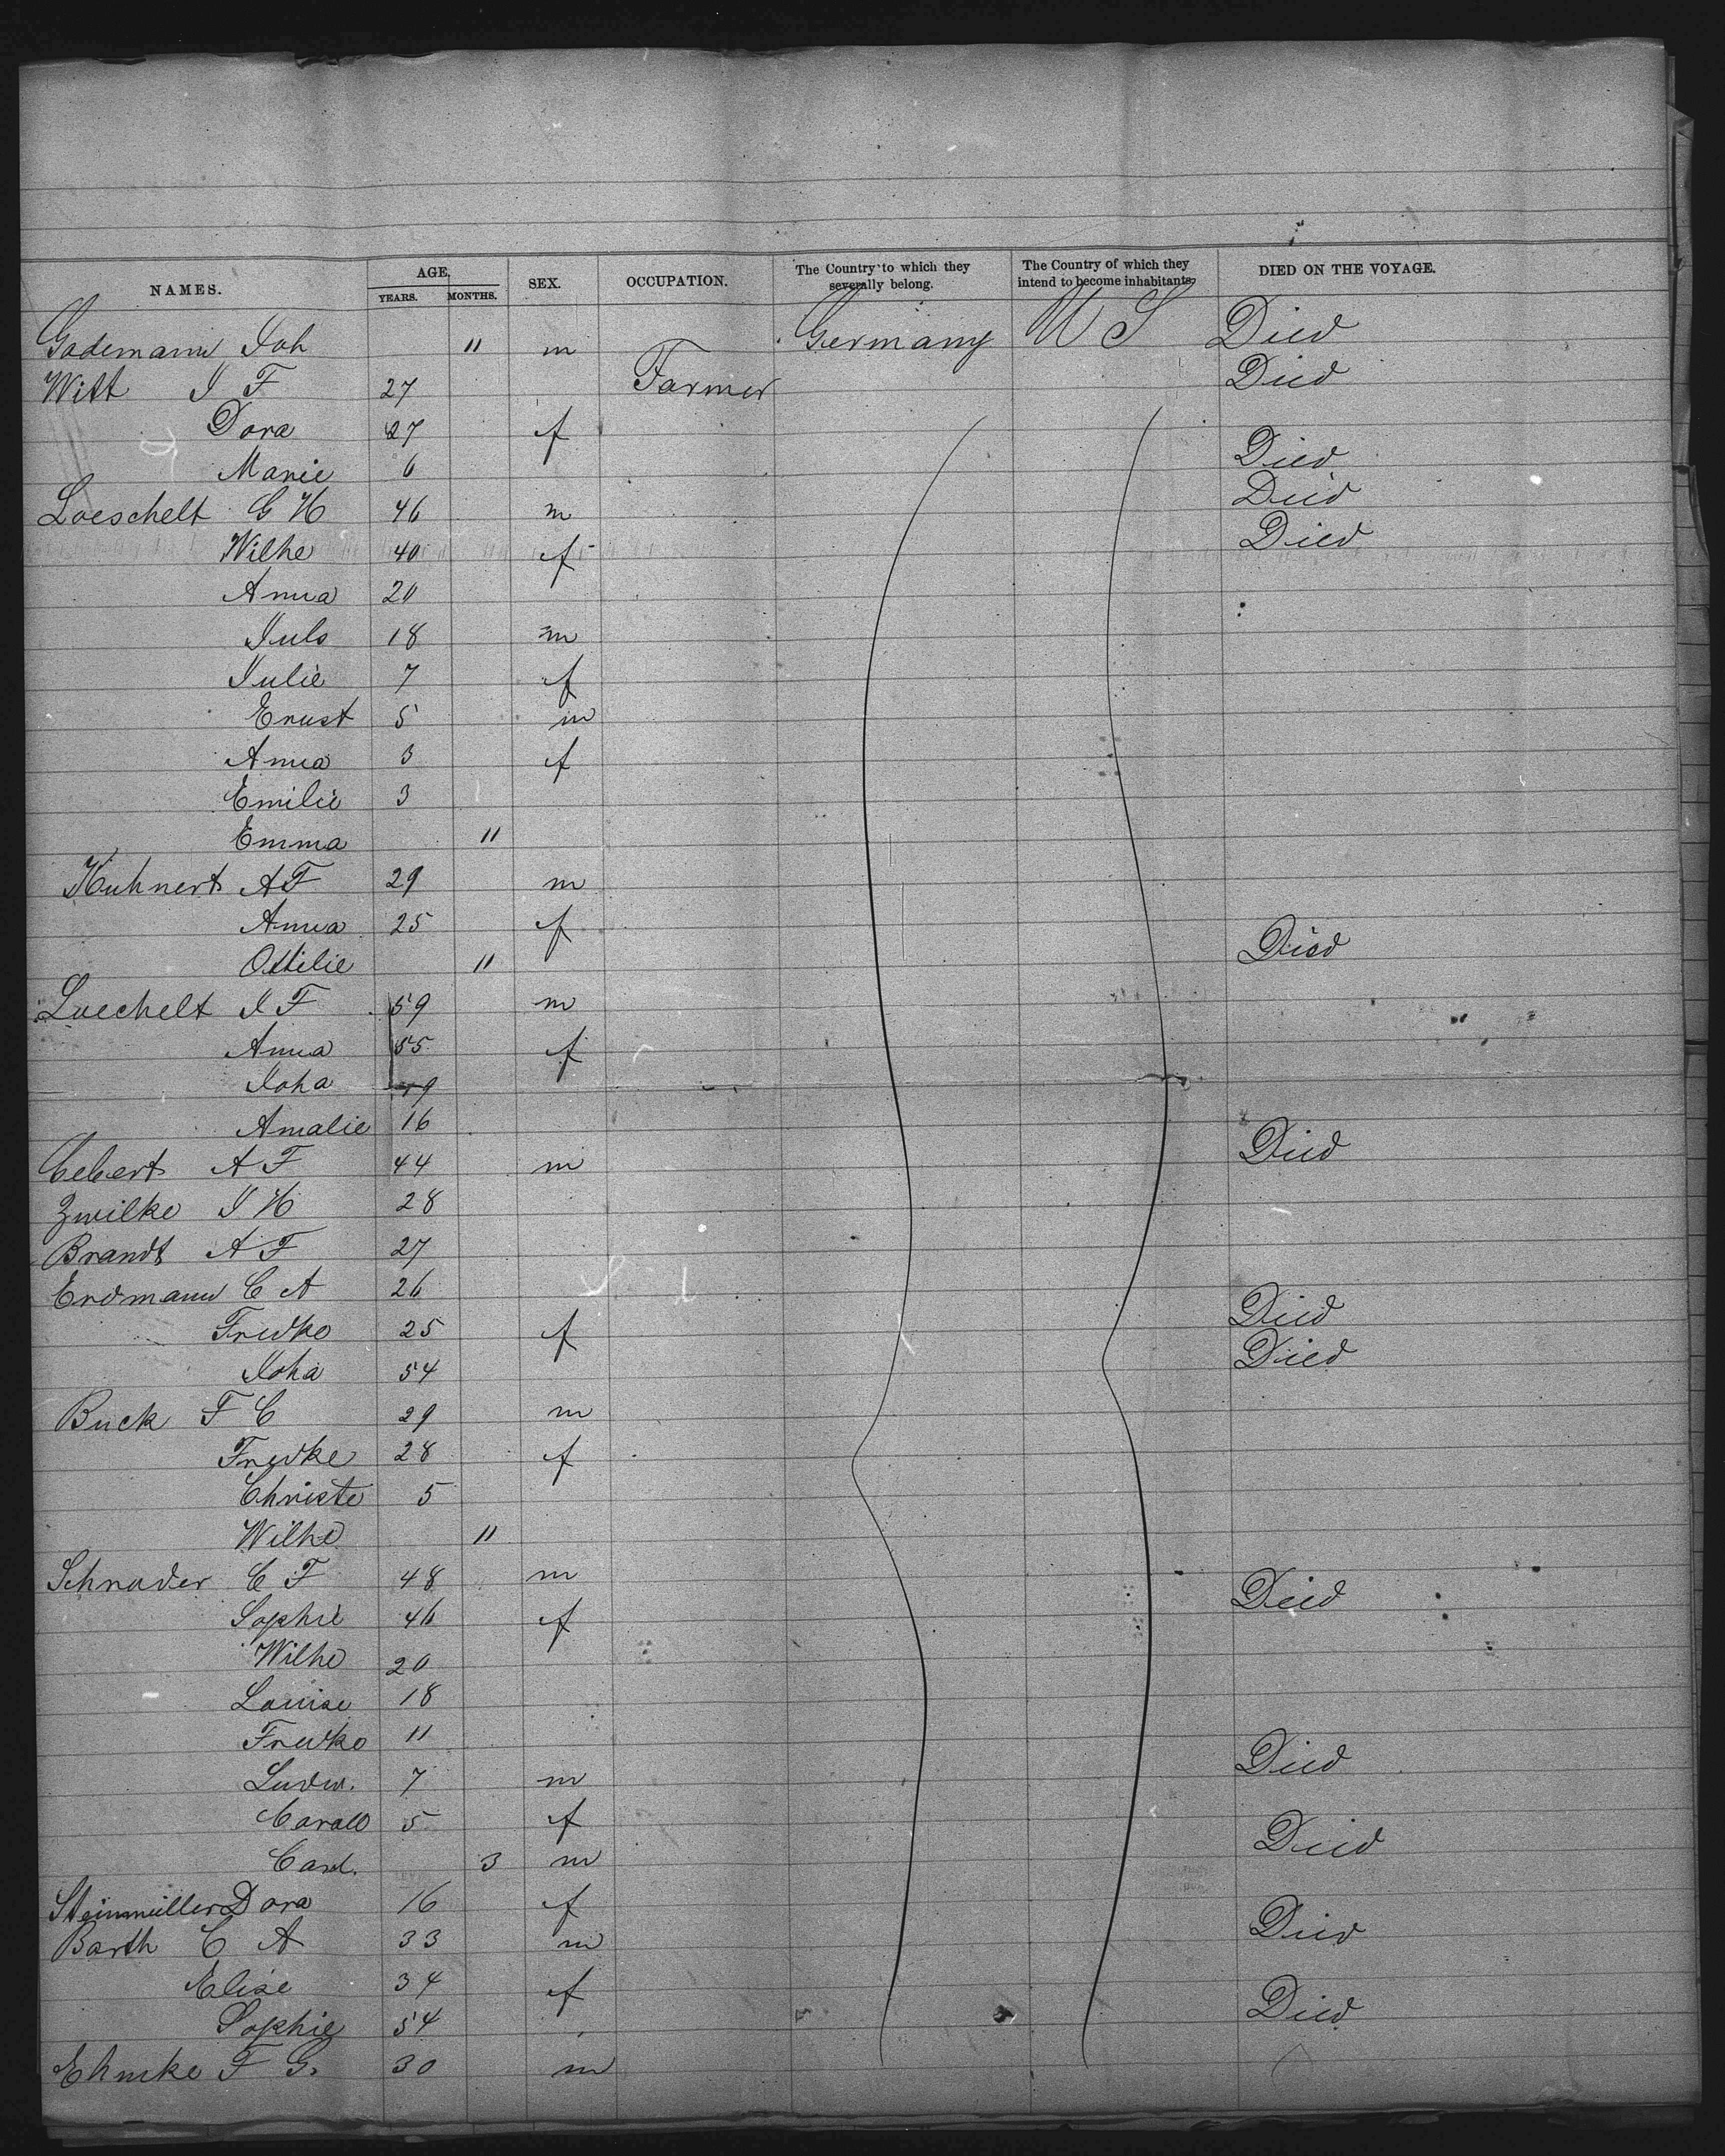 NAMES. AGE. YEARS. MONTHS. SEX. OCCUPATION. The Country to which they severally belong. The Country of which they intend to become inhabitants. DIED ON THE VOYAGE.
Godemann Joh 11 m Germany U S Died
Witt J F 27 Farmer Died
Dora 27 f
Marie 6 Died
Loeschelt G H 46 m Died
Wilhe 40 f Died
Anna 20
Juls 18 m
Julie 7 f
Ernst 5 m
Anna 3 f
Emilie 3
Emma 11
Kuhnert A F 29 m
Anna 25 f
Ottilie 11 Died
Luechelt J F 59 m
Anna 55 f
Joha 19
Amalie 16
A F 44 m Died
Zwilke J H 28
Brandt A F 27
Erdmann C A 26
Fredke 25 f Died
Joha 54 Died
Buck F C 29 m
Fredke 28 f
Christe 5
Wilhe 11
Schrader C F 48 m Died
Sophie 46 f
Wilhe 20
Louise 18
Fredke 11
Ludw. 7 m Died
5 f
Carl. 3 m Died
Steinmüller Dora 16 f
Barth C A 33 m Died
Elise 34 f
Sophie 54 Died
Ehmke F G. 30 m